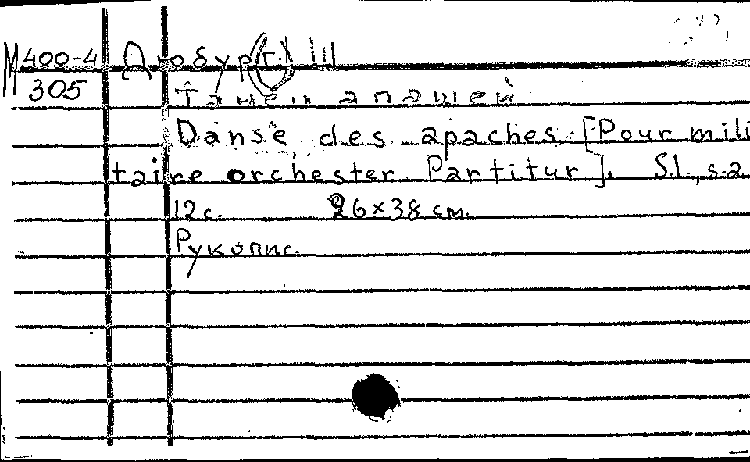 М 400-4
305
Дюбург(т) Ш
Танец апашей
Danse des apaches [Pour mili
taire orchester. Partitur]. S.l., s.a.
12 с. 26×38 см.
Рукопис.